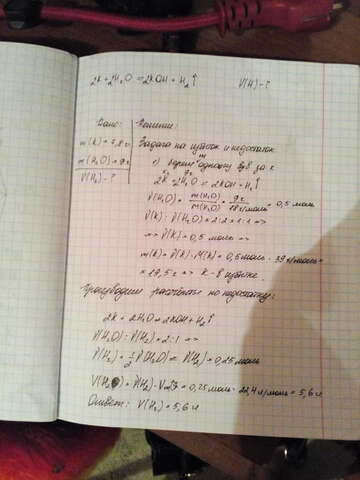 2K + 2H₂O = 2KOH + H₂↑ V(H)-?
Дано: Решение:
m(K) = 7,8 г Задача на избыток и недостаток
m(H₂O) = 9 г
V(H₂)-? 2K + 2H₂O = 2KOH + H₂↑
ν(H₂O) = m(H₂O) / M(H₂O) = 9 г / 18 г/моль = 0,5 моль
ν(K) : ν(H₂O) = 2:2 = 1:1 =>
=> ν(K) = 0,5 моль =>
m(K) = ν(K) · M(K) = 0,5 моль · 39 г/моль =
= 19,5 г => K - в избытке
Производим расчёты по недостатку:
2K + 2H₂O = 2KOH + H₂↑
ν(H₂O) : ν(H₂) = 2:1 =>
ν(H₂) = 1/2 ν(H₂O) => ν(H₂) = 0,25 моль
V(H₂) = ν(H₂) · Vm = 0,25 моль · 22,4 л/моль = 5,6 л
Ответ: V(H₂) = 5,6 л